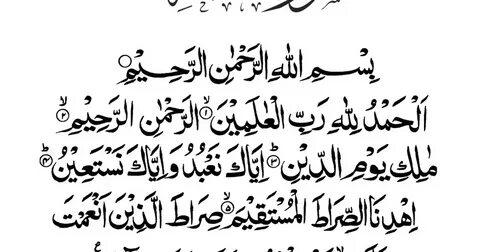 بِسْمِ اللهِ الرَّحْمٰنِ الرَّحِيْمِ
اَلْحَمْدُ لِلّٰهِ رَبِّ الْعٰلَمِيْنَ ۙ﴿۱﴾ الرَّحْمٰنِ الرَّحِيْمِ ۙ﴿۲﴾
مٰلِكِ يَوْمِ الدِّيْنِ ﴿۳﴾ اِيَّاكَ نَعْبُدُ وَاِيَّاكَ نَسْتَعِيْنُ ﴿۴﴾
اِهْدِنَا الصِّرَاطَ الْمُسْتَقِيْمَ ۙ﴿۵﴾ صِرَاطَ الَّذِيْنَ اَنْعَمْتَ